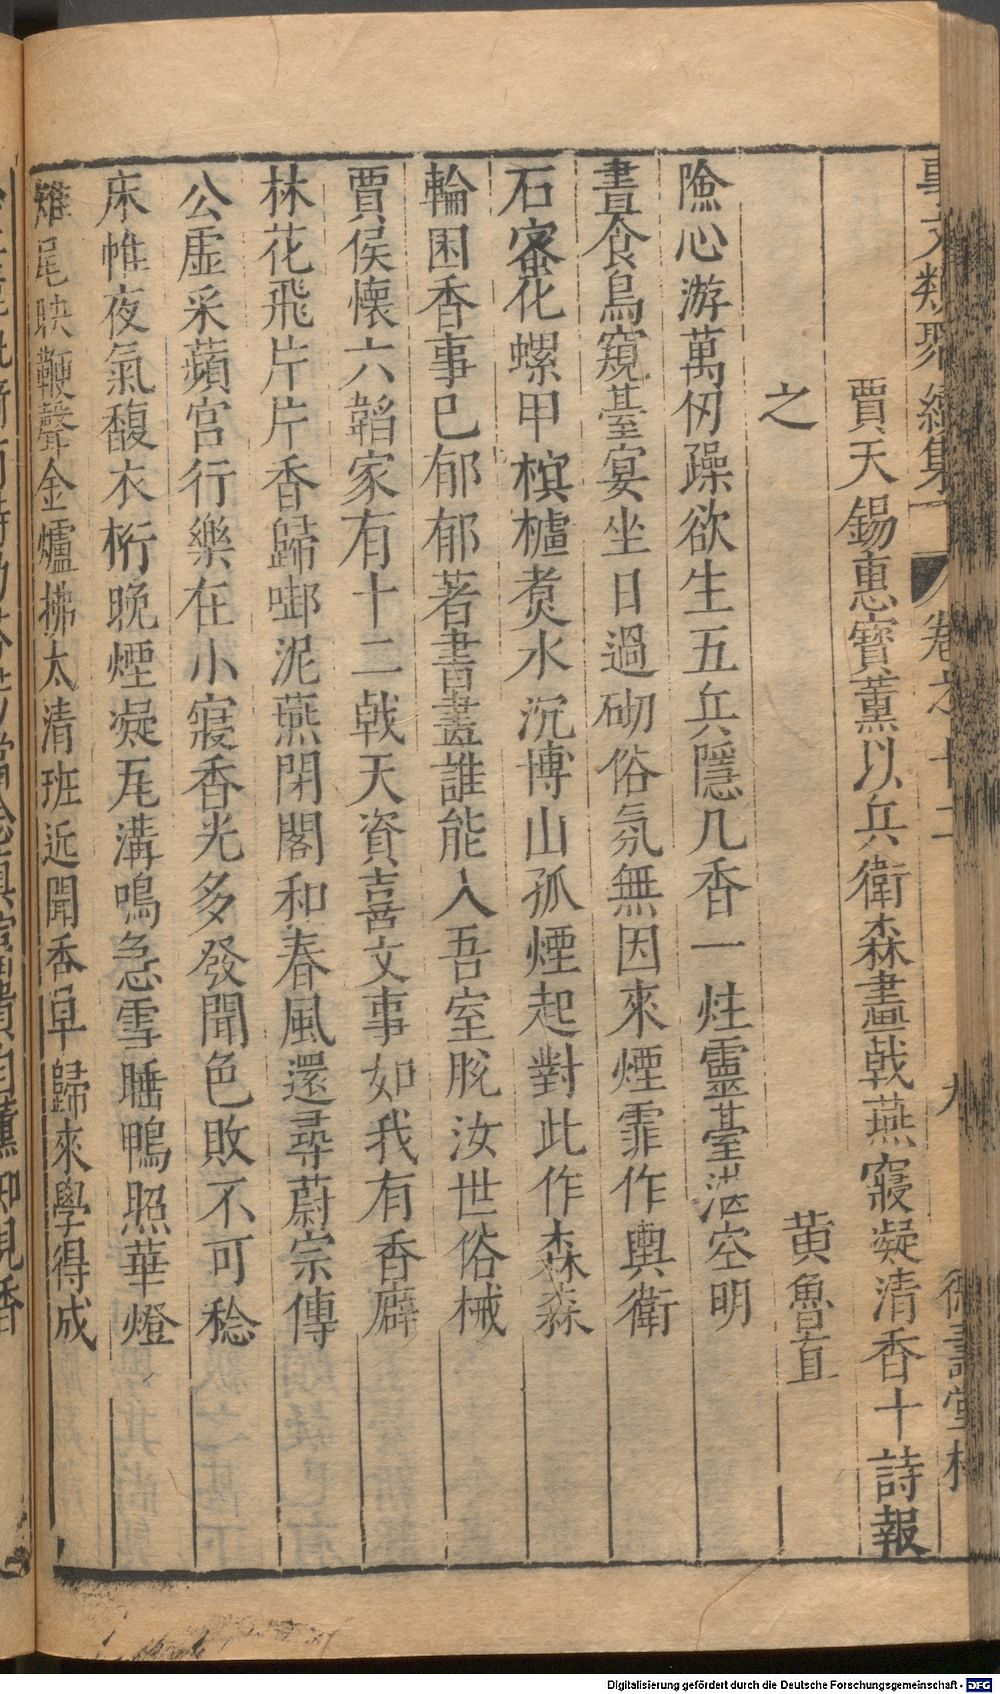 事文類聚續集 卷之十二 九 德壽堂梓
賈天錫惠寳薰以兵衛森畫戟燕寢凝清香十詩報
之 黄魯直
險心游萬仭躁欲生五兵隱几香一炷靈臺湛空明
晝食鳥窺臺宴坐日過砌俗氛無因來煙霏作輿衛
石蜜化螺甲榠樝煑水沉博山孤煙起對此作森森
輪囷香事已郁郁著書畫誰能入吾室脫汝世俗械
賈侯懷六韜家有十二戟天資喜文事如我有香癖
林花飛片片香歸啣泥燕閉閤和春風還尋蔚宗傳
公虛采蘋宮行樂在小寢香光多發聞色敗不可稔
床帷夜氣馥衣桁晚煙凝瓦溝鳴急雪睡鴨照華燈
雉尾映鞭聲金爐拂太清班近聞香早歸來學得成
Digitalisierung gefördert durch die Deutsche Forschungsgemeinschaft - DFG